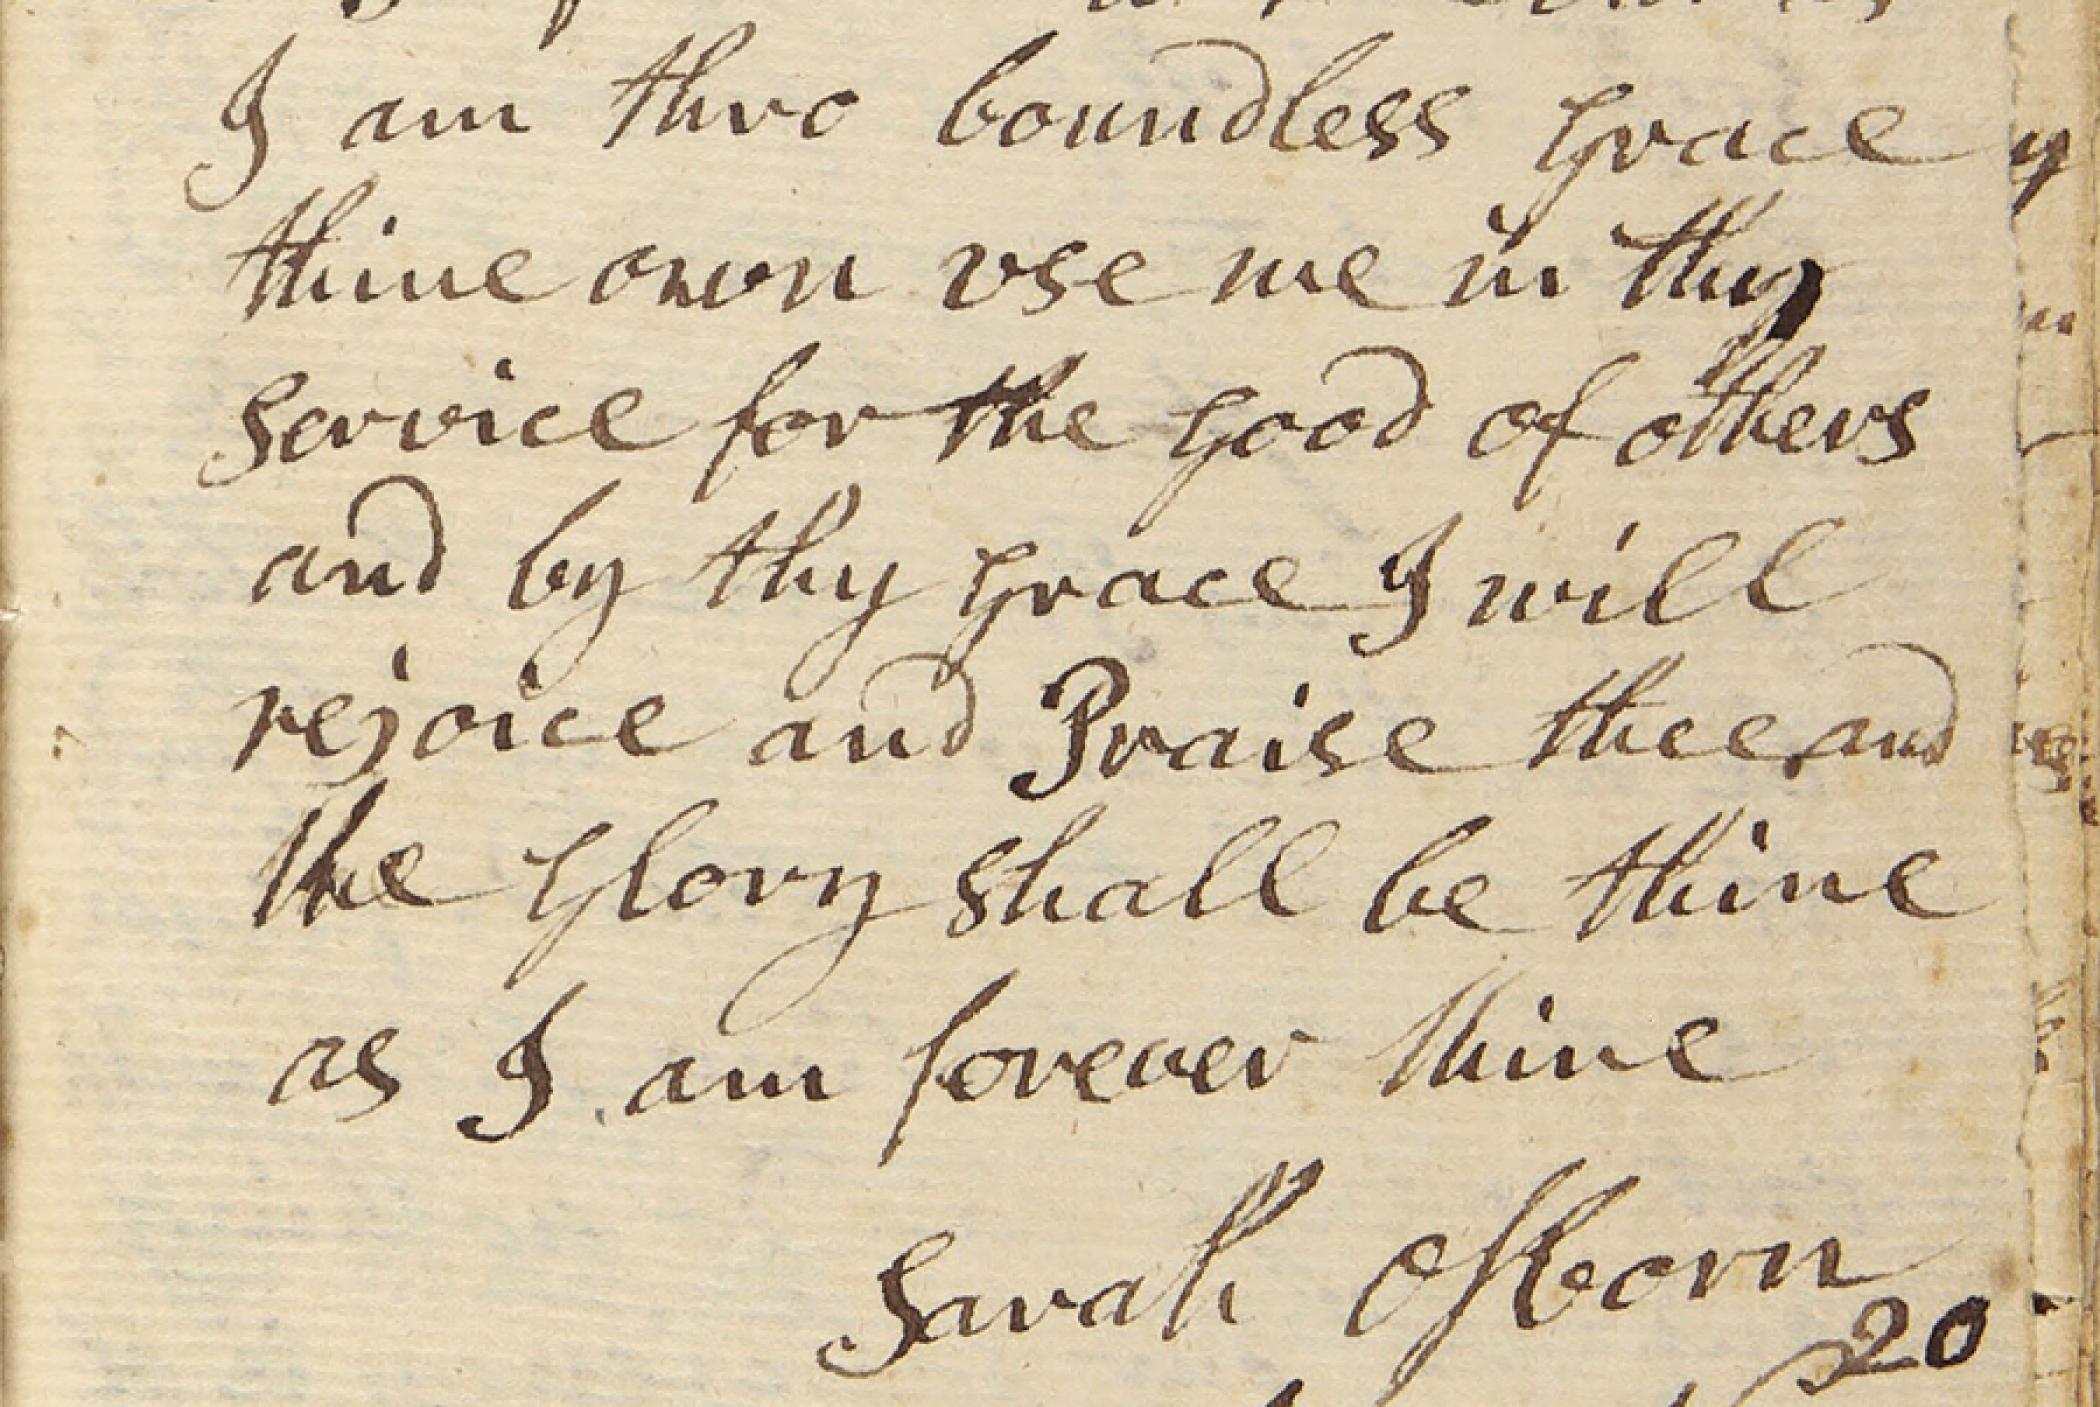 I am thro boundless Grace
thine own vse me in thy
Service for the good of others
and by thy Grace I will
rejoice and Praise thee and
the Glory shall be thine
as I am forever thine
Sarah Osborn
20